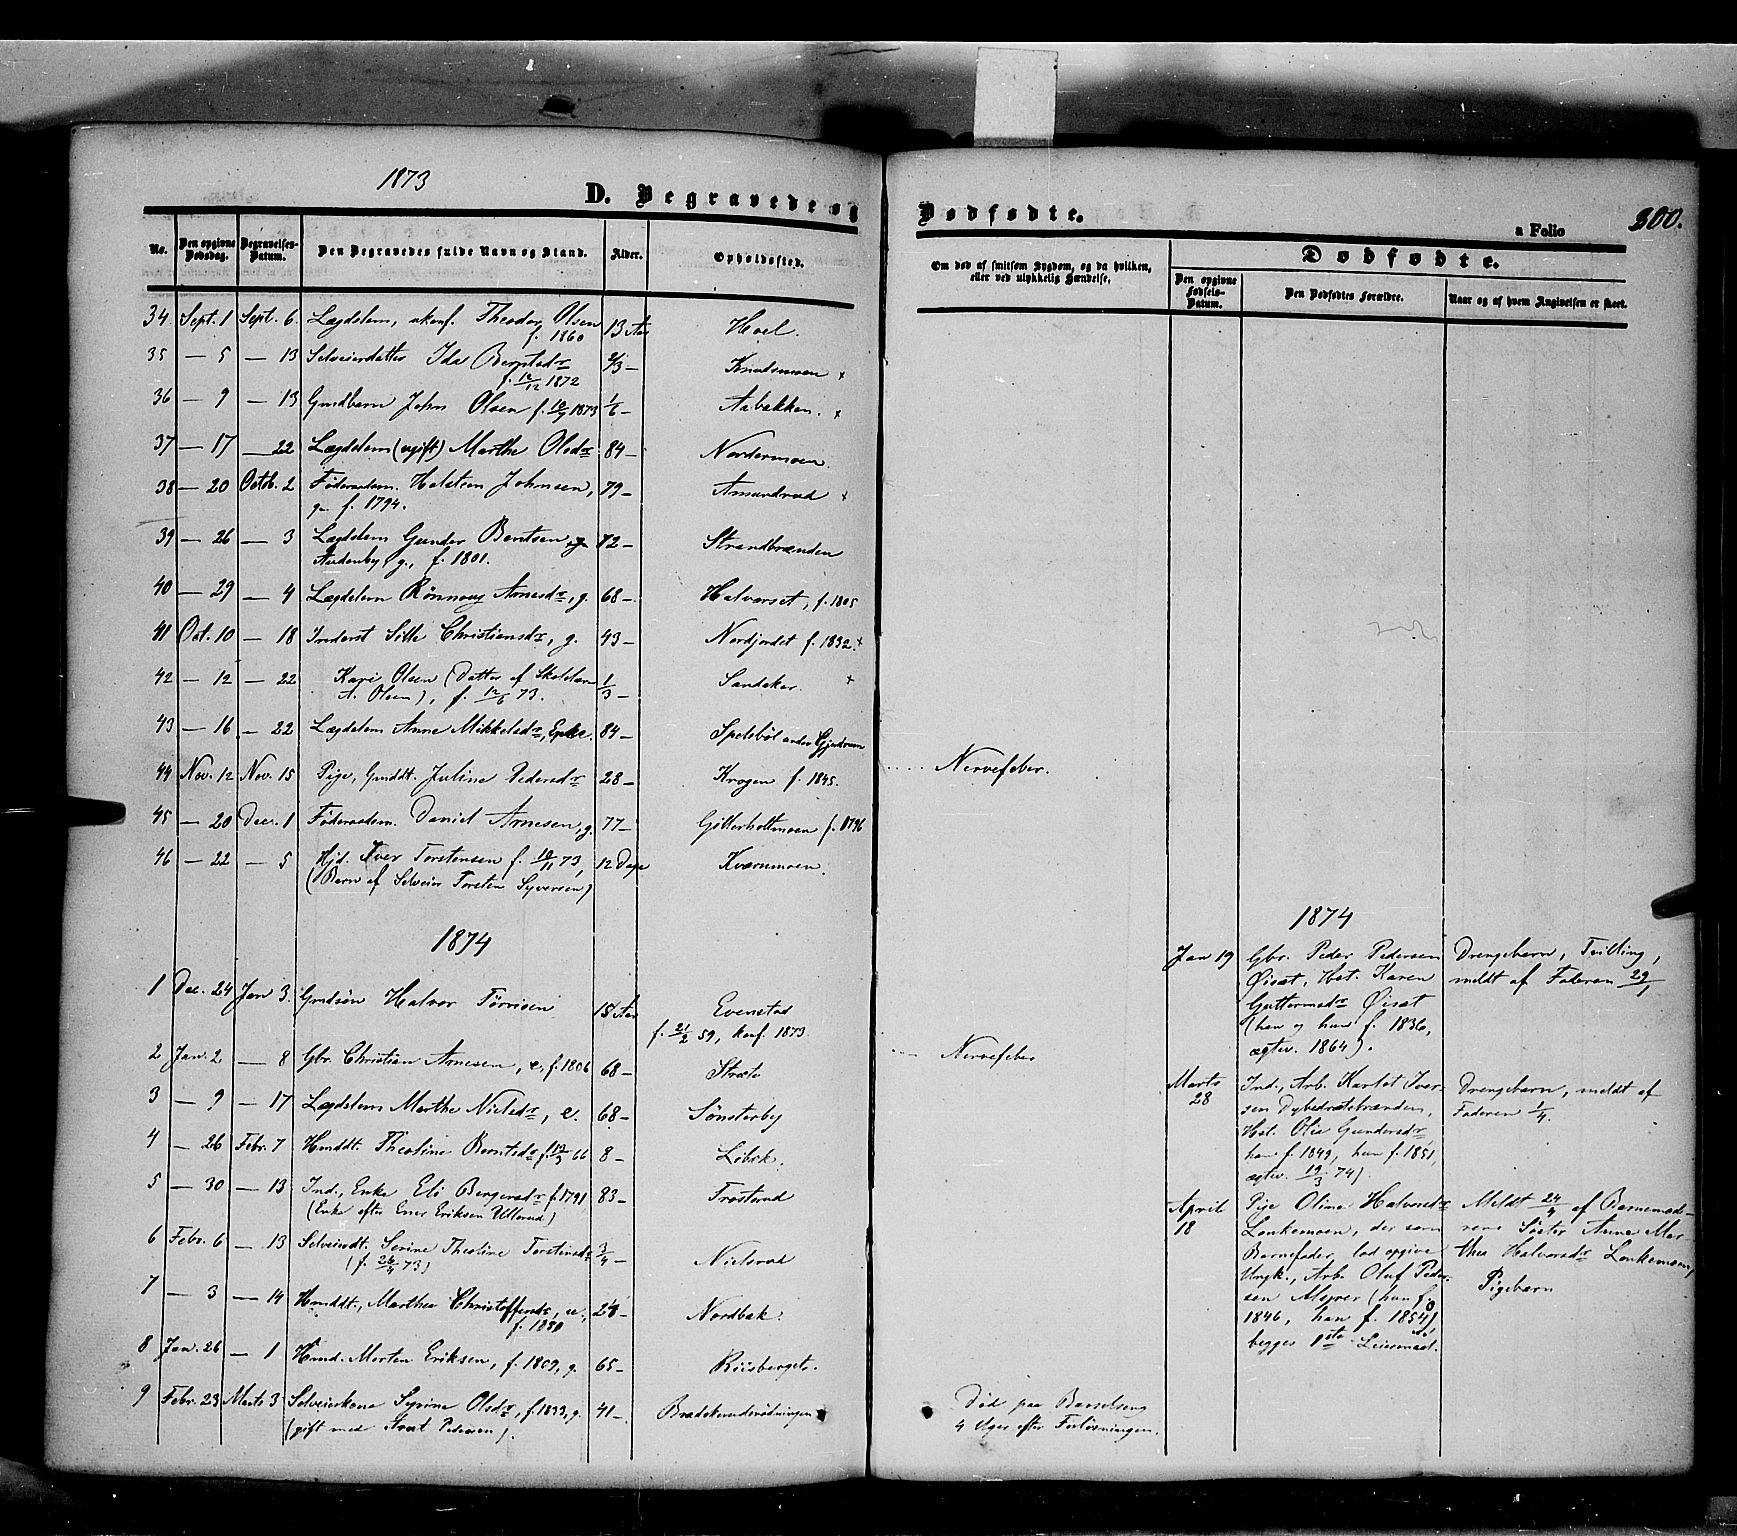 1873
D. Begravede og
Dødfødte.
a Folio
300.
No.
Den opgivne Dødsdag.
Begravelses-Datum.
Den Begravedes fulde Navn og Stand.
Alder.
Opholdssted.
Om død af smitsom Sygdom, og da hvilken, eller ved ulykkelig Hændelse.
Dødfødte.
Den opgivne Fødsels-Datum.
Den Dødfødtes Forældre.
Naar og af hvem Angivelsen er skeet.
34 Sept. 1 Sept. 6. Lægdslem, ukonf. Theodor Olsen 13 Aar Hoel.
f. 1860
35 — 5 — 13 Selveierdatter Ida Berntsdr 2/3 — Knudsmoen x
f. 12/12 1872
36 — 9 — 13 Grndbarn John Olsen f. 10/7 1873 1/6 — Aabakken. x
37 — 17 — 22 Lægdslem (ugift) Marthe Olsdr 84 — Nordermoen.
38 — 20 Octb. 2 Føderaadsm. Halsten Johnsen, 79 — Amundrud x
g. f. 1794.
39 — 26 — 3 Lægdslem Gunder Bentsen 72 — Strandbrænden
g., f. 1801.
40 — 29 — 4 Lægdslem Rønnoug Arnesdr, g. 68 — Halvorset, f. 1805
41 Oct. 10 — 18 Inderst Sille Christiansdr, g. 43 — Nordjordet f. 1832 x
42 — 12 — 22 Kari Olsen (Datter af Skolelærer 1/3 — Sandaker. x
A. Olsen), f. 12/6 73.
43 — 16 — 22 Lægdslem Anne Mikkelsdr, Enke. 84 — Spelsbøl under Gjerdrum
44 Nov. 12 Nov. 15 Pige, Grnddt. Juline Pedersdr 28 — Krogen f. 1845. ..... Nervefeber.
45 — 20 Dec. 1 Føderaadsm. Daniel Arnesen, g. 77 — Gitterholtmoen f. 1796
46 — 22 — 5 Hjd. Iver Torstensen f. 10/11 73, 12 Dage Kværnmoen.
(Barn af Selveier Torsten Syversen)
1874
1 Dec. 24 Jan 3. Grndsøn Halvor Tørrisen 15 Aar Evenstad
f. 21/2 59, konf. 1873
2 Jan. 2 — 8 Gbr. Christian Arnesen, e, f. 1806 68 — Stræte .... Nervefeber
3 — 9 — 17 Lægdslem Marthe Nielsdr, e. 68 — Sønsterby
4 — 26 Febr. 7 Hmddt. Theoline Berntsdr f. 19/3 66 8 — Libæk.
5 — 30 — 13 Ind., Enke Eli Bergersdr f. 1791 83 — Frosterud
(Enke efter Ener Eriksen Ullerud)
6 Febr. 6 — 13 Selveierdt. Serine Theoline Torstensdr 3/4 — Nielsrud
(f. 26/4 73)
7 — 3 — 14 Hmddt., Marthea Christoffersdr, u., 24 — Nordbæk.
f. 1850
8 Jan. 26 — 1 Hmd. Morten Eriksen, f. 1809, g. 65 — Riisberget.
9 Febr. 23 Marts 3 Selveierkone Syrine Olsdr, f. 1833, g. 41 — Bradskerudrødningen Død paa Barselseng
(gift med Pedersen). 4 Uger efter Forløsningen.
1874
Jan 19 Gbr. Peder Pedersen Drengebarn, Tvilling,
Øisæt, Hst. Karen meldt af Faderen 29/1
Guttormsdr Øisæt
(han og hun f. 1836,
ægtev. 1864).
Marts Ind., Arb. Karlot Iver- Drengebarn, meldt af
28 sen Dybedratsbrænden, Faderen 1/4.
Hst. Olia Gundersdr,
han f. 1849, hun f. 1851,
ægtev. 19/3 74).
April Pige Oline Halvorsdr Meldt 24/4 af Barnemode-
18 Lonkemoen, der som rens Søster Anne Mar-
Barnefader, lod opgive thea Halvorsdr Lonkemoen,
Ungk., Arb. Oluf Peder- Pigebarn
sen (hun f.
1846, han f. 1854),
begges 1ste Leiermaal.